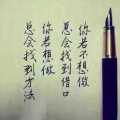 你若不想做
总会找到借口
你若想做
总会找到方法